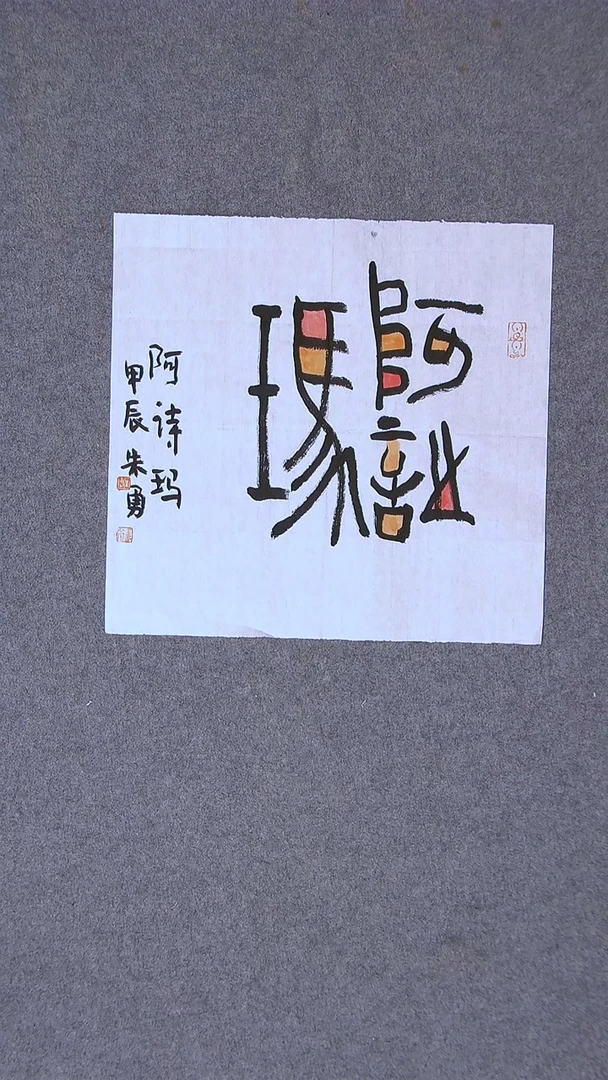 阿詩
瑪
阿诗玛
甲辰朱勇